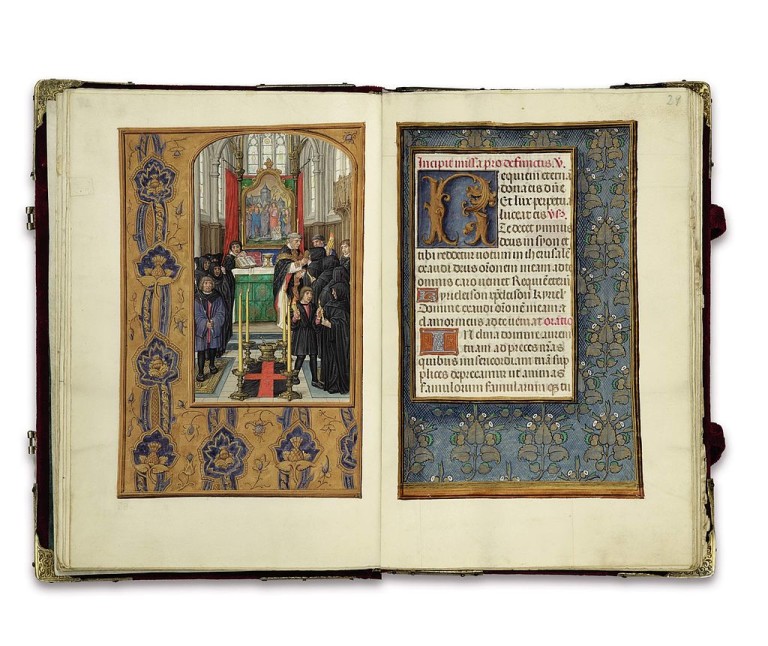 21
Incipit missa pro defunctis. V.
Requiem eterna
dona eis dñe
Et lux perpetua
luceat eis. Vs.
Te decet ymnus
deus in syon et
tibi reddetur votum in iherusale
exaudi deus orõnem meam ad te
omnis caro veniet Requiem etern
Kyrieleyson xpeleyson Kyriel
Domine exaudi orõne meam
clamor meus ad te veniat oratio
Inclina domine aurem
tuam ad preces nr̃as
quibus misericordiam tuã sup
plices deprecamur ut animas
famulorum famularum que tu